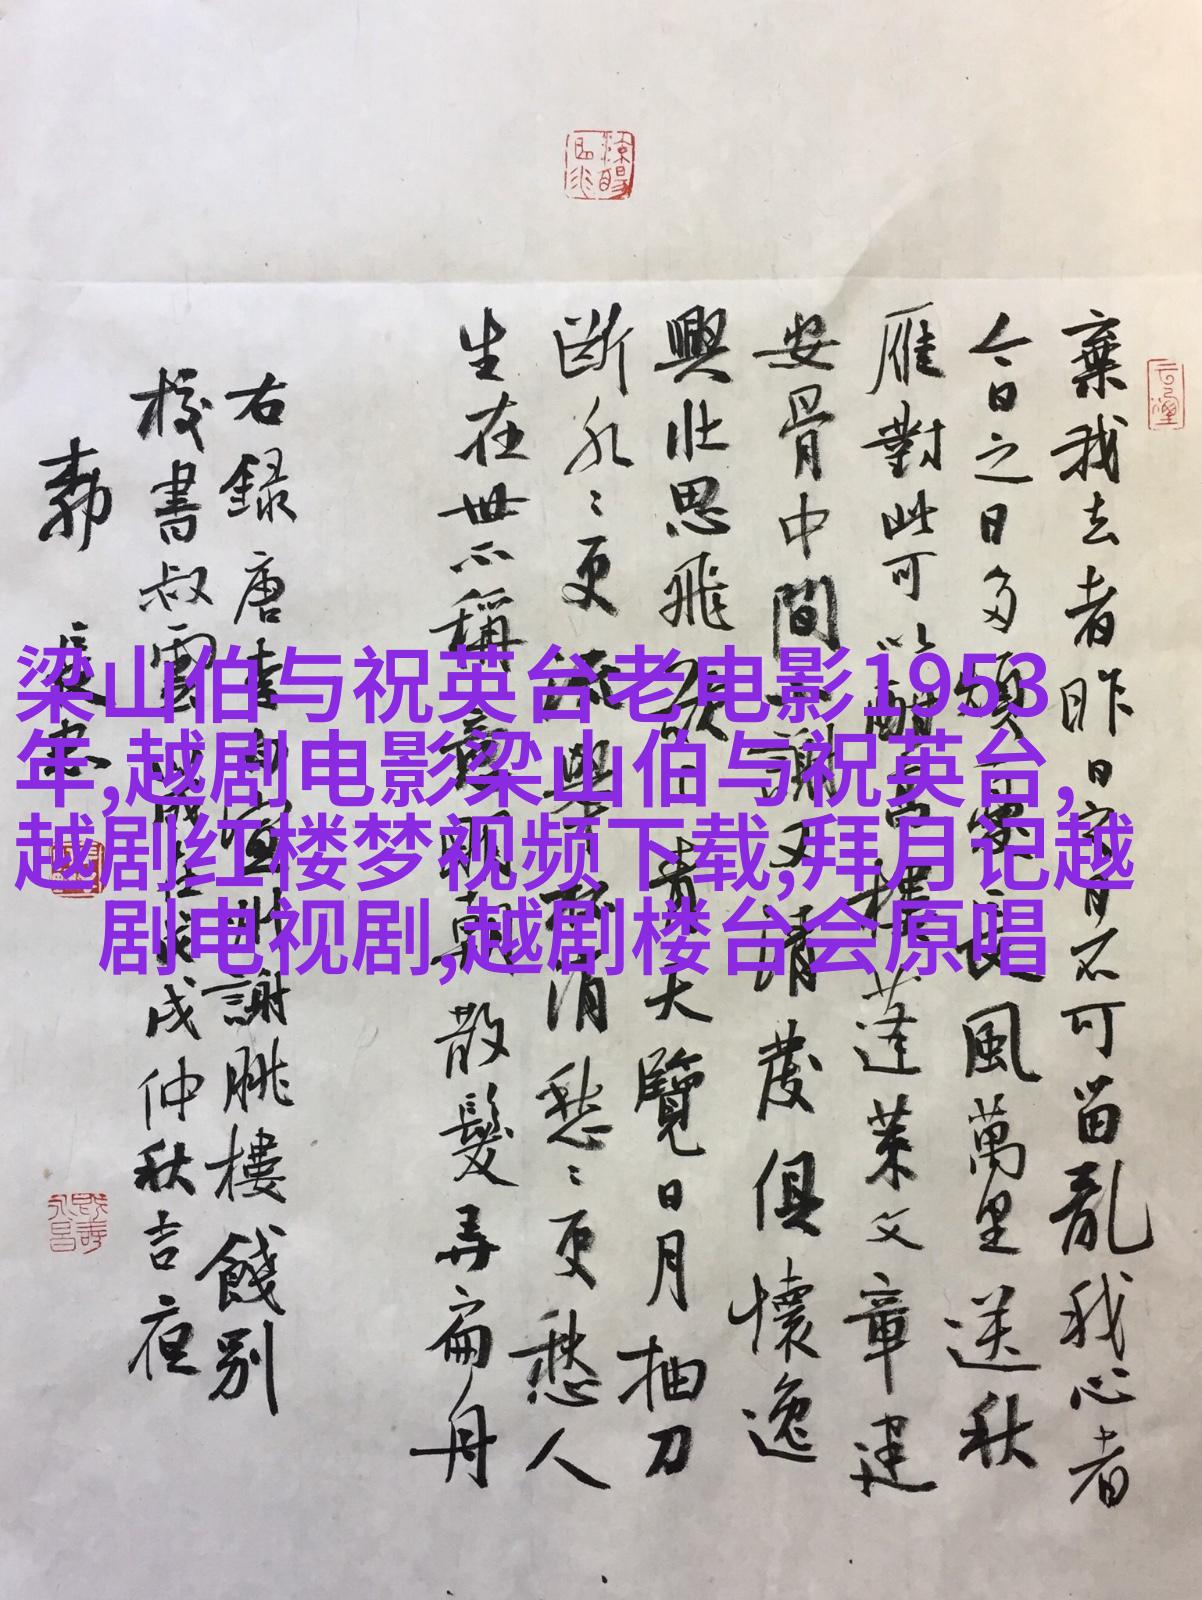 棄我去者昨日日不可留亂我心者
今日之日多煩憂長風萬里送秋
雁對此可以酣高樓蓬萊文章建
安骨中間小謝又清發俱懷逸
興壯思飛欲上青天覽日月抽刀
斷水〻更流舉杯消愁〻更愁人
生在世不稱意明朝散髮弄扁舟
右錄唐李白宣州謝朓樓餞別
校書叔雲戌仲秋吉夜
梁山伯与祝英台老电影1953
年,越剧电影梁山伯与祝英台,
越剧红楼梦视频下载,拜月记越
剧电视剧,越剧楼台会原唱